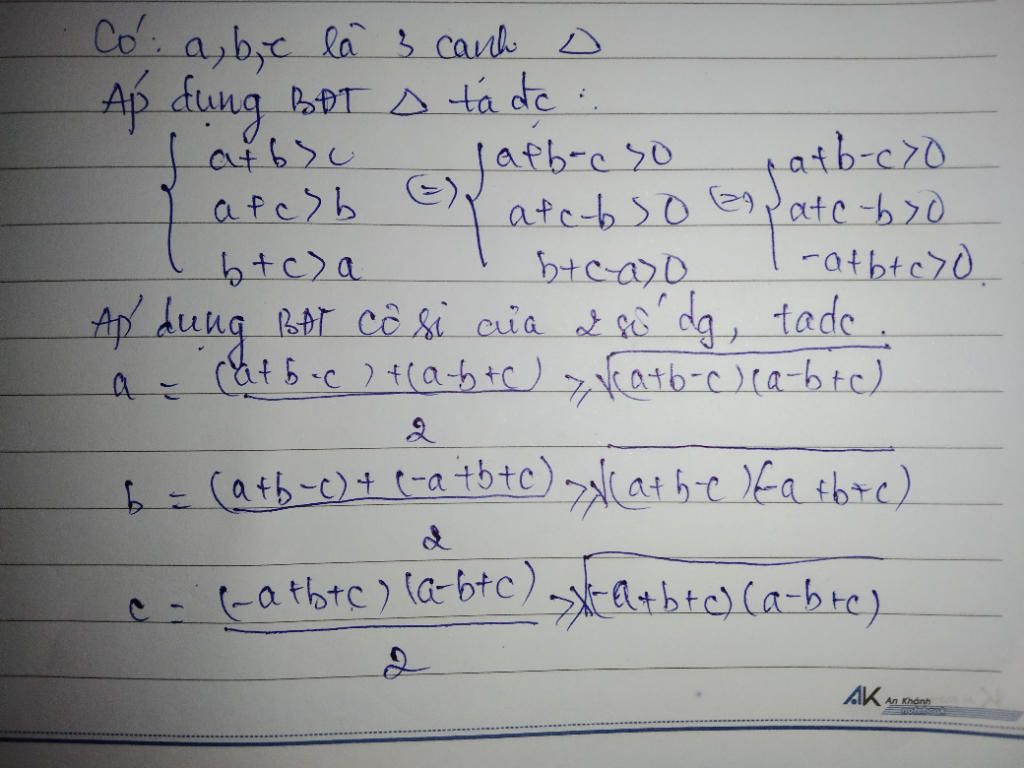 Có: a,b,c là 3 canh Δ
Áp dụng BĐT Δ ta đc :
{ a+b>c (=) { a+b-c >0 (=) { a+b-c>0
a+c>b a+c-b >0 a+c-b>0
b+c>a b+c-a>0 -a+b+c>0.
Áp dụng BĐT Cô si của 2 số dg, ta đc.
a = (a+b-c)+(a-b+c)/2 ≥ √(a+b-c)(a-b+c)
b = (a+b-c)+(-a+b+c)/2 ≥ √(a+b-c)(-a+b+c)
c = (-a+b+c)(a-b+c)/2 ≥ √(-a+b+c)(a-b+c)
AK An Khánh